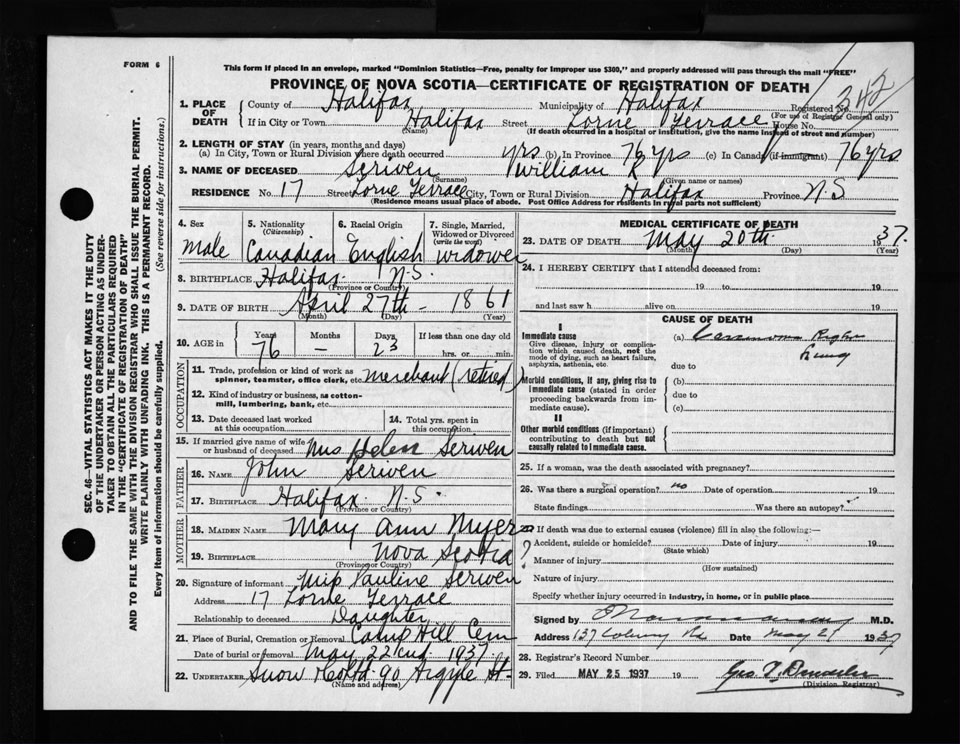 FORM 6
This form if placed in an envelope, marked "Dominion Statistics—Free, penalty for improper use $300," and properly addressed will pass through the mail "FREE"
PROVINCE OF NOVA SCOTIA—CERTIFICATE OF REGISTRATION OF DEATH
1. PLACE OF DEATH County of Halifax Municipality of Halifax Registered No. 342
(For use of Registrar General only)
If in City or Town Halifax Street Lorne Terrace House No.
(Name) (If death occurred in a hospital or institution, give the name instead of street and number)
2. LENGTH OF STAY (in years, months and days)
(a) In City, Town or Rural Division where death occurred yrs (b) In Province 76 yrs (c) In Canada (if immigrant) 76 yrs
3. NAME OF DECEASED Scriven William
(Surname) (Given name or names)
RESIDENCE No. 17 Street Lorne Terrace City, Town or Rural Division Halifax Province N.S
(Residence means usual place of abode. Post Office Address for Residents in rural parts not sufficient)
4. Sex male
5. Nationality (Citizenship) Canadian
6. Racial Origin English
7. Single, Married, Widowed or Divorced (write the word) widower
8. BIRTHPLACE Halifax N.S.
(Province or Country)
9. DATE OF BIRTH April 27th - 1861
(Month) (Day) (Year)
10. AGE in Years 76 Months — Days 23 If less than one day old hrs. or min.
OCCUPATION
11. Trade, profession or kind of work as spinner, teamster, office clerk, etc. merchant (retired)
12. Kind of industry or business, as cotton-mill, lumbering, bank, etc.
13. Date deceased last worked at this occupation
14. Total yrs. spent in this occupation
15. If married give name of wife or husband of deceased Mrs Helen Scriven
FATHER
16. NAME John Scriven
17. BIRTHPLACE Halifax N.S.
(Province or Country)
MOTHER
18. MAIDEN NAME Mary Ann Myer
19. BIRTHPLACE Nova Scotia
(Province or Country)
20. Signature of informant Miss Pauline Scriven
Address 17 Lorne Terrace
Relationship to deceased Daughter
21. Place of Burial, Cremation or Removal Camp Hill Cem
Date of burial or removal May 22nd 1937
22. UNDERTAKER Snow & Co Ltd 90 Argyle St-
(Name and address)
MEDICAL CERTIFICATE OF DEATH
23. DATE OF DEATH May 20th 1937.
(Month) (Day) (Year)
24. I HEREBY CERTIFY that I attended deceased from:
19 to 19
and last saw h alive on 19
CAUSE OF DEATH
I
Immediate cause
Give disease, injury or complication which caused death, not the mode of dying, such as heart failure, asphyxia, asthenia, etc.
(a) Carcinoma Right Lung
due to
Morbid conditions, if any, giving rise to immediate cause (stated in order proceeding backwards from immediate cause).
(b)
due to
(c)
II
Other morbid conditions (if important) contributing to death but not causally related to immediate cause.
25. If a woman, was the death associated with pregnancy?
26. Was there a surgical operation? no Date of operation 19
State findings Was there an autopsy?
27. If death was due to external causes (violence) fill in also the following:—
Accident, suicide or homicide? Date of injury 19
(State which)
Manner of injury
(How sustained)
Nature of injury
Specify whether injury occurred in industry, in home, or in public place
Signed by M.D.
Address 137 Date May 21 1937
28. Registrar's Record Number
29. Filed MAY 25 1937 19 Geo
(Division Registrar)
SEC. 46—VITAL STATISTICS ACT MAKES IT THE DUTY
OF THE UNDERTAKER OR PERSON ACTING AS UNDER-
TAKER TO OBTAIN ALL THE PARTICULARS REQUIRED
IN THE "CERTIFICATE OF REGISTRATION OF DEATH"
AND TO FILE THE SAME WITH THE DIVISION REGISTRAR WHO SHALL ISSUE THE BURIAL PERMIT.
WRITE PLAINLY WITH UNFADING INK. THIS IS A PERMANENT RECORD.
Every item of information should be carefully supplied. (See reverse side for instructions.)